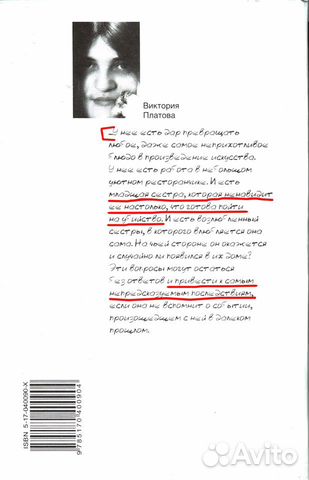 Виктория
Платова
У нее есть дар превращать
любое, даже самое неприхотливое
блюдо в произведение искусства.
У нее есть работа в небольшом
уютном ресторанчике. И есть
младшая сестра, которая ненавидит
ее настолько, что готова пойти
на убийство. И есть возлюбленный
сестры, в которого влюбляется она
сама. На чьей стороне он окажется
и случайно ли появился в их доме?
Эти вопросы могут остаться
без ответов и привести к самым
непредсказуемым последствиям,
если она не вспомнит о событии,
произошедшем с ней в далеком
прошлом.
ISBN 5-17-040090-X
9785170400904
Avito